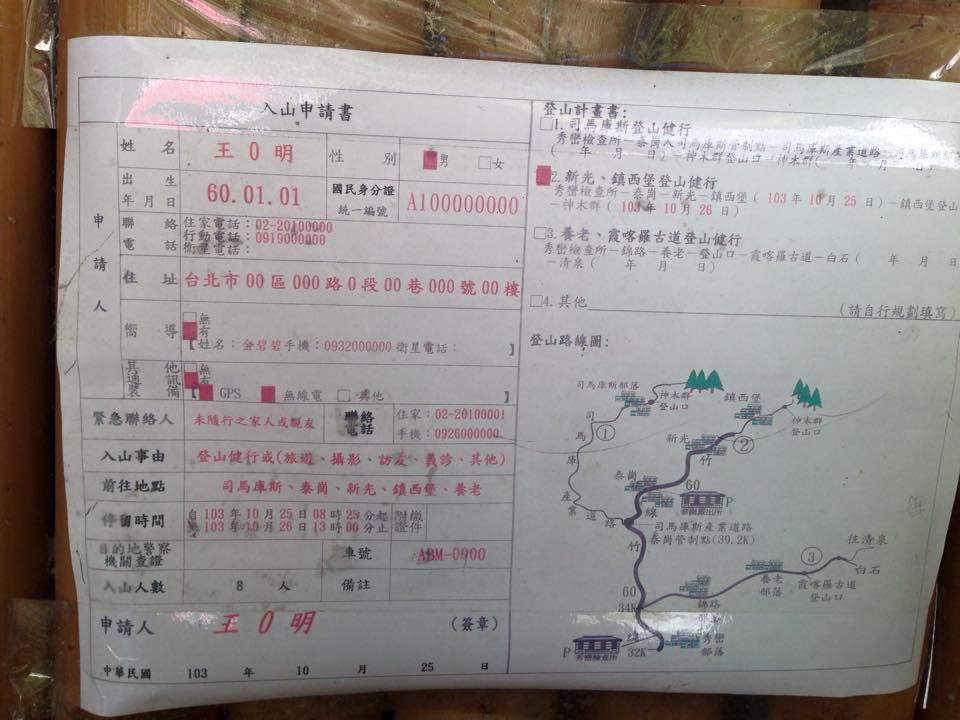 入山申請書
申請人
姓名 王0明 性別 男 女
出生年月日 60.01.01 國民身分證統一編號 A100000000
聯絡電話 住家電話：02-20100000
行動電話：0919000000
衛星電話：
住址 台北市00區000路0段00巷000號00樓
嚮導 無
有
【姓名：金碧碧手機：0932000000 衛星電話： 】
其他通訊裝備 無
有
【 GPS 無線電 其他 】
緊急聯絡人 未隨行之家人或親友 聯絡電話 住家：02-20100001
手機：0926000000
入山事由 登山健行或(旅遊、攝影、訪友、義診、其他)
前往地點 司馬庫斯、泰崗、新光、鎮西堡、養老
停留時間 自103年10月25日08時25分起 附繳證件
至103年10月26日13時00分止
目的地警察機關查證 車號 ABM-0000
入山人數 8 人 備註
申請人 王0明 (簽章)
中華民國 103 年 10 月 25 日
登山計畫書：
□1.司馬庫斯登山健行
秀巒檢查所－泰崗入司馬庫斯管制點－司馬庫斯產業道路－司馬庫斯部
( 年 月 日)－神木群登山口－神木群( 年 月 日)
2.新光、鎮西堡登山健行
秀巒檢查所－泰崗－新光－鎮西堡(103年10月25日)－鎮西堡登山
－神木群(103年10月26日)
□3.養老、霞喀羅古道登山健行
秀巒檢查所－錦路－養老－登山口－霞喀羅古道－白石( 年 月 日)
－清泉( 年 月 日)
□4.其他 (請自行規劃填寫)
登山路線圖：
司馬庫斯部落
神木群登山口
鎮西堡
神木群登山口
司馬庫斯產業道路
①
新光
②
竹
泰崗
60
線
P
泰崗派出所
司馬庫斯產業道路
泰崗管制點(39.2K)
竹
③
往清泉
白石
養老部落
霞喀羅古道登山口
60
34K
錦路
P
秀巒檢查所
32K
秀巒部落